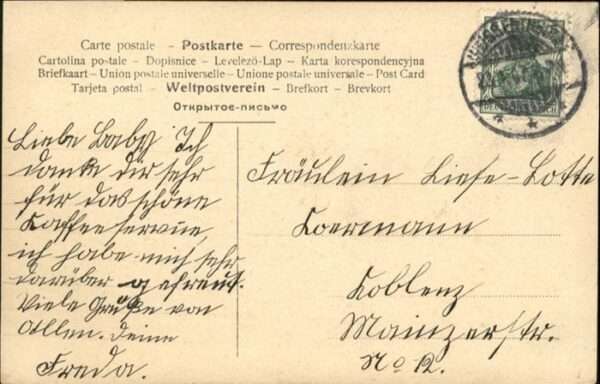 Carte postale – Postkarte – Correspondenzkarte
Cartolina postale – Dopisnice – Levelező-Lap – Karta korespondencyjna
Briefkaart – Union postale universelle – Unione postale universale – Post Card
Tarjeta postal – Weltpostverein – Brefkort – Brevkort
Открытое-письмо
Liebe Baby Ich
danke dir sehr
für das schöne
Kaffeeservie,
ich habe mich sehr
darüber gefreut.
Viele Grüße von
Allen. Deine
Freda.
Fräulein Liese-Lotte
Koermann
Koblenz
Mainzerstr.
No 12.